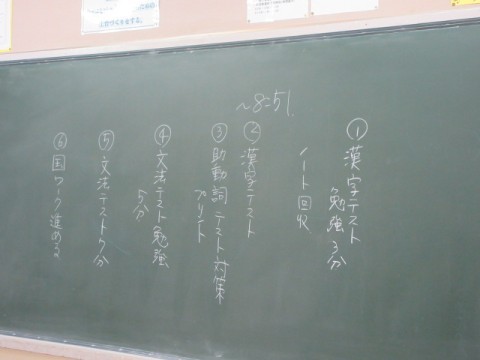 ～8:51
① 漢字テスト
勉強 3分
ノート回収
② 漢字テスト
③ 助動詞テスト対策
プリント
④ 文法テスト勉強
5分
⑤ 文法テスト7分
⑥ 国ワーク進める